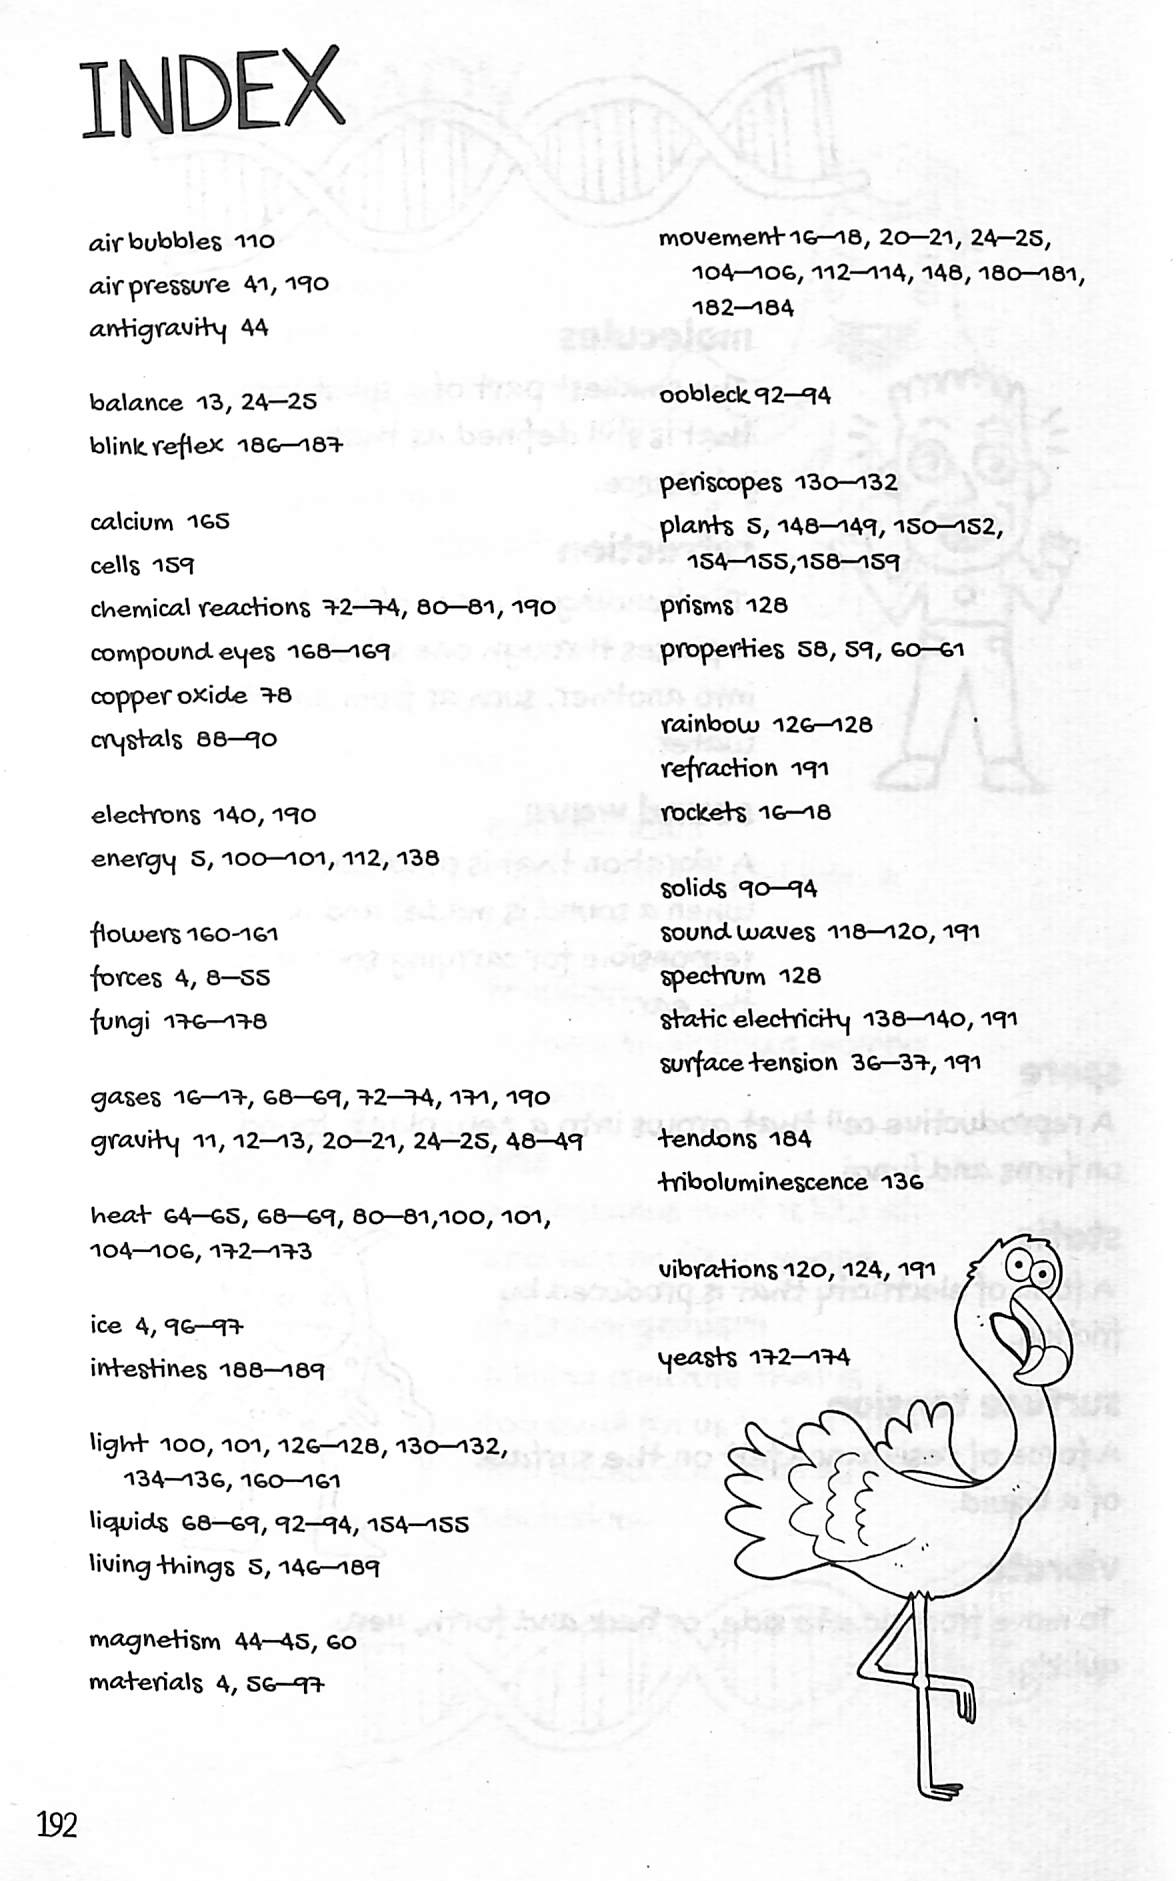 INDEX
air bubbles 110
air pressure 41, 190
antigravity 44
balance 13, 24–25
blink reflex 186–187
calcium 165
cells 159
chemical reactions 72–74, 80–81, 190
compound eyes 168–169
copper oxide 78
crystals 88–90
electrons 140, 190
energy 5, 100–101, 112, 138
flowers 160-161
forces 4, 8–55
fungi 176–178
gases 16–17, 68–69, 72–74, 171, 190
gravity 11, 12–13, 20–21, 24–25, 48–49
heat 64–65, 68–69, 80–81,100, 101,
104–106, 172–173
ice 4, 96–97
intestines 188–189
light 100, 101, 126–128, 130–132,
134–136, 160–161
liquids 68–69, 92–94, 154–155
living things 5, 146–189
magnetism 44–45, 60
materials 4, 56–97
movement 16–18, 20–21, 24–25,
104–106, 112–114, 148, 180–181,
182–184
oobleck 92–94
periscopes 130–132
plants 5, 148–149, 150–152,
154–155,158–159
prisms 128
properties 58, 59, 60–61
rainbow 126–128
refraction 191
rockets 16–18
solids 90–94
sound waves 118–120, 191
spectrum 128
static electricity 138–140, 191
surface tension 36–37, 191
tendons 184
triboluminescence 136
vibrations 120, 124, 191
yeasts 172–174
192